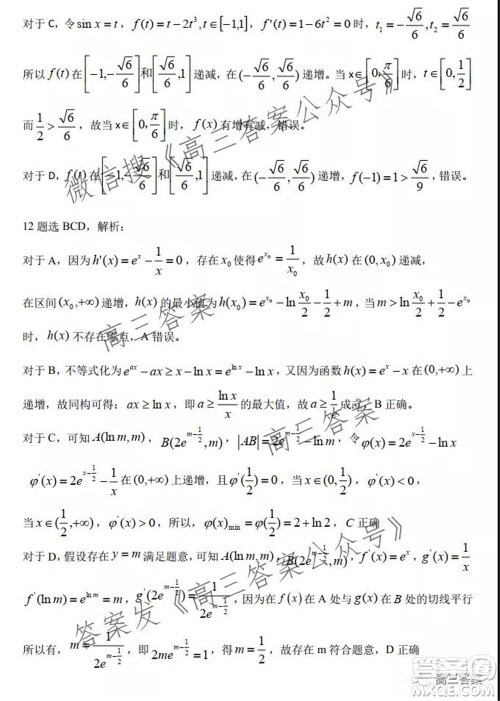 对于 C，令 sin x = t，f(t) = t − 2t³, t ∈ [−1,1]，f'(t) = 1 − 6t² = 0 时，t₁ = −√6/6, t₂ = √6/6
所以 f(t) 在 [−1, −√6/6] 和 [√6/6, 1] 递减，在 (−√6/6, √6/6) 递增。当 x∈[0, π/6] 时，t ∈ [0, 1/2]
而 1/2 > √6/6，故当 x∈[0, π/6] 时，f(x) 有增有减，错误。
对于 D，f(t) 在 [−1, −√6/6] 和 [√6/6, 1] 递减，在 (−√6/6, √6/6) 递增，f(−1) = 1 > √6/9，错误。
12 题选 BCD，解析：
对于 A，因为 h'(x) = eˣ − 1/x = 0，存在 x₀ 使得 e^{x₀} = 1/x₀，故 h(x) 在 (0, x₀) 递减，
在区间 (x₀, +∞) 递增，h(x) 的最小值为 h(x₀) = e^{x₀} − ln x₀/2 − 1/2 + m，当 m > ln x₀/2 + 1/2 − e^{x₀}
时，h(x) 不存在零点，A 错误。
对于 B，不等式化为 e^{ax} − ax ≥ x − ln x = e^{ln x} − ln x，又因为函数 h(x) = eˣ − x 在 (0, +∞) 上
递增，故同构可得：ax ≥ ln x，即 a ≥ ln x/x 的最大值，故 a ≥ 1/e 成立，B 正确。
对于 C，可知 A(ln m, m)，B(2e^{m−1/2}, m)，|AB| = 2e^{m−1/2} − ln m，令 φ(x) = 2e^{x−1/2} − ln x
φ'(x) = 2e^{x−1/2} − 1/x 在 (0, +∞) 上递增，且 φ'(1/2) = 0，当 x ∈ (0, 1/2)，φ'(x) < 0，
当 x ∈ (1/2, +∞)，φ'(x) > 0，所以，φ(x)min = φ(1/2) = 2 + ln 2，C 正确
对于 D，假设存在 y = m 满足题意，可知 A(ln m, m)，B(2e^{m−1/2}, m)，f'(x) = eˣ，g'(x) = 1/x
f'(ln m) = e^{ln m} = m，g'(2e^{m−1/2}) = 1/(2e^{m−1/2})，因为在 f(x) 在 A 处与 g(x) 在 B 处的切线平行
所以有，m = 1/(2e^{m−1/2})，即 2me^{m−1/2} = 1，得 m = 1/2，故存在 m 符合题意，D 正确
微信搜《高三答案公众号》
高三答案
高三答案
答案发《高三答案公众号》
高三答案